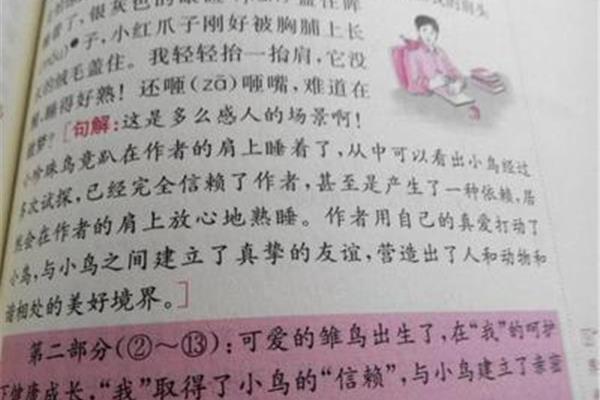 着了，银灰色的眼睑
子，小红爪子刚好被胸脯上长
的绒毛盖住。我轻轻抬一抬肩，它没
睡得好熟！还咂(zā)咂嘴，难道在
做梦？[句解:这是多么感人的场景啊！
小珍珠鸟竟趴在作者的肩上睡着了，从中可以看出小鸟经过
多次试探，已经完全信赖了作者，甚至是产生了一种依赖，居
然会在作者的肩上放心地熟睡。作者用自己的真爱打动了
小鸟，与小鸟之间建立了真挚的友谊，营造出了人和动物和
谐相处的美好境界。]
第二部分(②～⑬)：可爱的雏鸟出生了，在“我”的呵护
下健康成长，“我”取得了小鸟的“信赖”，与小鸟建立了亲密